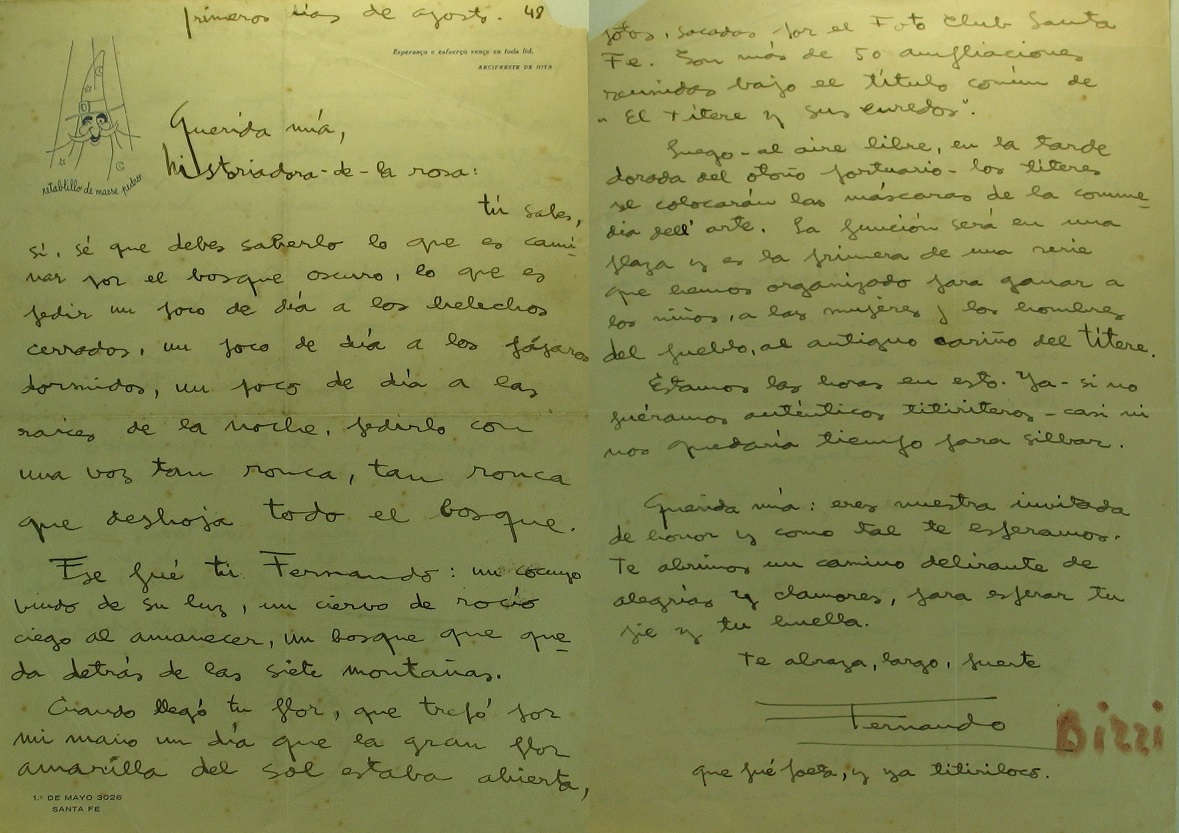 primeros días de agosto. 48
Esperança e esfuerço vençe en toda lid.
ARCIPRESTE DE HITA
retablillo de maese pedro
Querida mía,
historiadora-de-la rosa:
tú sabes,
sí, sé que debes saberlo lo que es cami-
nar por el bosque oscuro, lo que es
pedir un poco de día a los helechos
cerrados, un poco de día a los pájaros
dormidos, un poco de día a las
raíces de la noche, pedirlo con
una voz tan ronca, tan ronca
que deshoja todo el bosque.
Ese fué tu Fernando: un cocuyo
viudo de su luz, un ciervo de rocío
ciego al amanecer, un bosque que que-
da detrás de las siete montañas.
Cuando llegó tu flor, que trepó por
mi mano un día que la gran flor
amarilla del sol estaba abierta,
1.º DE MAYO 3026
SANTA FE
fotos, sacadas por el Foto Club Santa
Fe. Son más de 50 ampliaciones
reunidas bajo el título común de
"El títere y sus enredos".
Luego-al aire libre, en la tarde
dorada del otoño portuario-los títeres
se colocarán las máscaras de la comme-
dia dell'arte. La función será en una
plaza y es la primera de una serie
que hemos organizado para ganar a
los niños, a las mujeres y los hombres
del pueblo, al antiguo cariño del títere.
Estamos las horas en esto. Ya-si no
fuéramos auténticos titiriteros-casi ni
nos quedaría tiempo para silbar.
Querida mía: eres nuestra invitada
de honor y como tal te esperamos.
Te abrimos un camino delirante de
alegrías y clamores, para esperar tu
pie y tu huella.
Te abraza, largo, fuerte
Fernando
Birri
que fué poeta, y ya titiriloco.